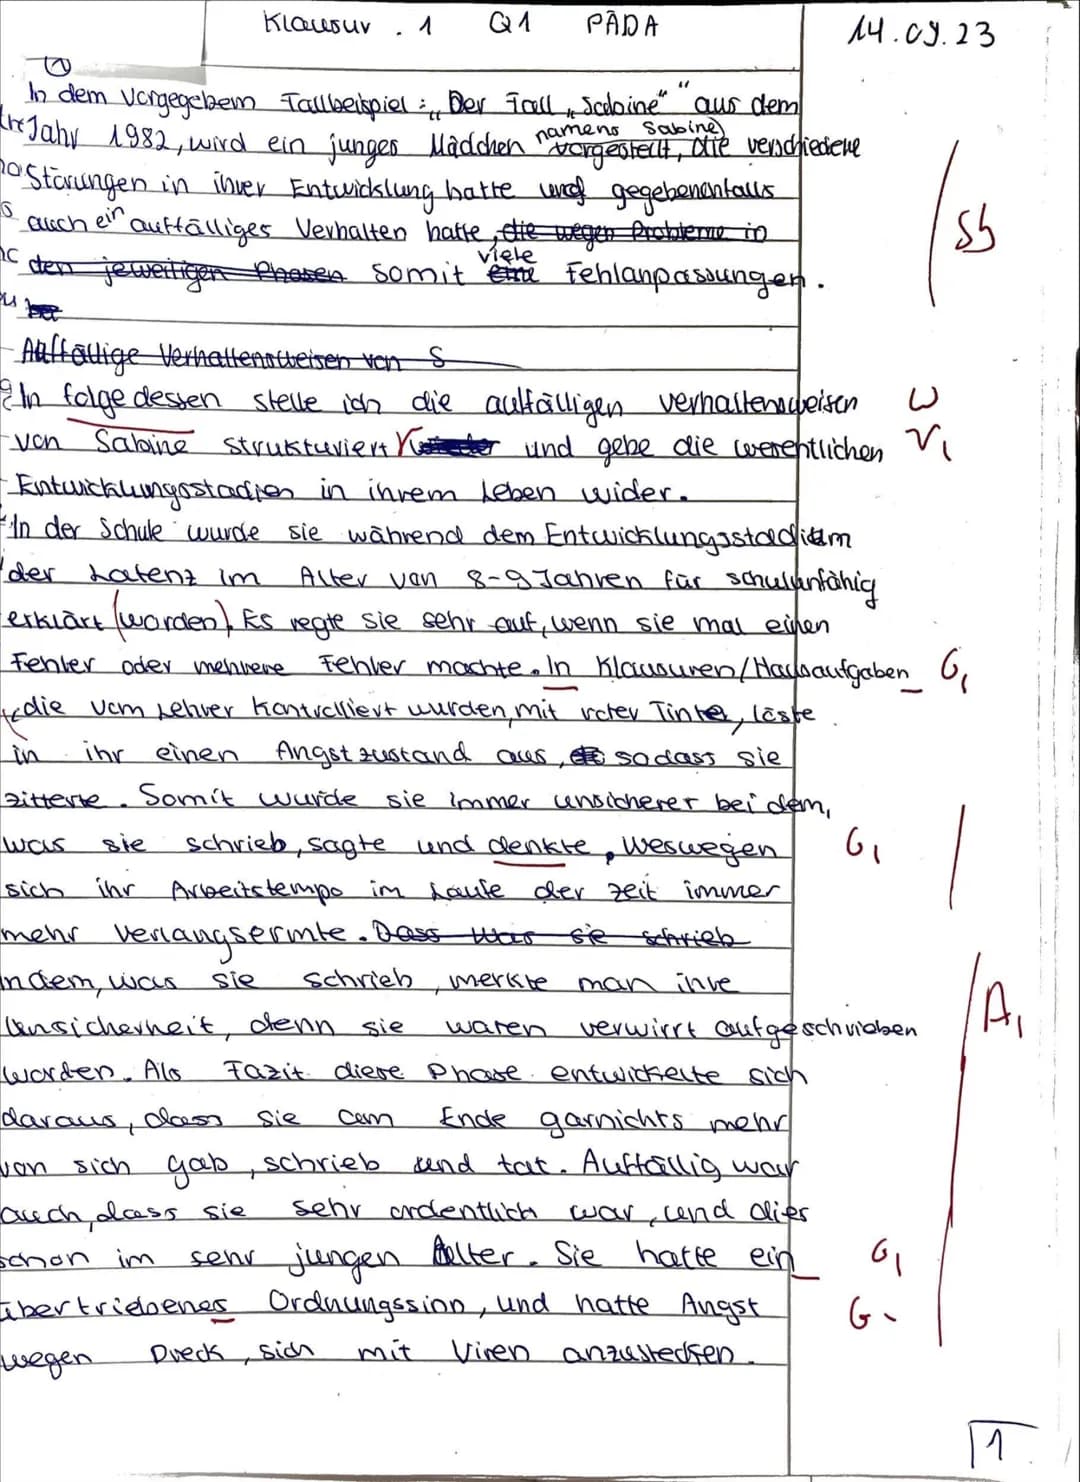 Klausur . 1 Q1 PÄDA
14.09.23
1
In dem Vorgegebem Fallbeispiel : „Der Fall „Sabine“ “ aus dem
Jahr 1982, wird ein junges Mädchen namens Sabine vorgestellt, die verschiedene
Störungen in ihrer Entwicklung hatte und gegebenenfalls
auch ein auffälliges Verhalten hatte, die wegen Probleme in
den jeweiligen Phasen somit eine viele Fehlanpassungen.
Sb
Auffällige Verhaltensweisen von S
In folge dessen stelle ich die auffälligen verhaltensweisen
W
von Sabine strukturiert und gebe die wesentlichen
Entwicklungsstadien in ihrem Leben wider.
In der Schule wurde sie während dem Entwicklungsstadium
der Latenz im Alter von 8-9 Jahren für schulunfähig
erklärt (worden). Es regte sie sehr auf, wenn sie mal einen
Fehler oder mehrere Fehler machte. In Klausuren/Hausaufgaben
G,
die vom Lehrer kontrolliert wurden, mit roter Tinte, löste
in ihr einen Angstzustand aus, sodass sie
zitterte. Somit wurde sie immer unsicherer bei dem,
was sie schrieb, sagte und denkte, weswegen
G,
sich ihr Arbeitstempo im Laufe der zeit immer
mehr verlangsermte. Dass was sie schrieb
indem, was sie schrieb, merkte man ihre
Unsicherheit, denn sie waren verwirrt aufgeschrieben
A,
worden. Als Fazit diese Phase entwickelte sich
daraus, dass sie am Ende garnichts mehr
von sich gab, schrieb und tat. Auffällig war
auch, dass sie sehr ordentlich war, und dies
schon im sehr jungen Alter. Sie hatte ein
G,
übertriebenes Ordnungssinn, und hatte Angst
G
wegen Dreck, sich mit Viren anzustecken.
1